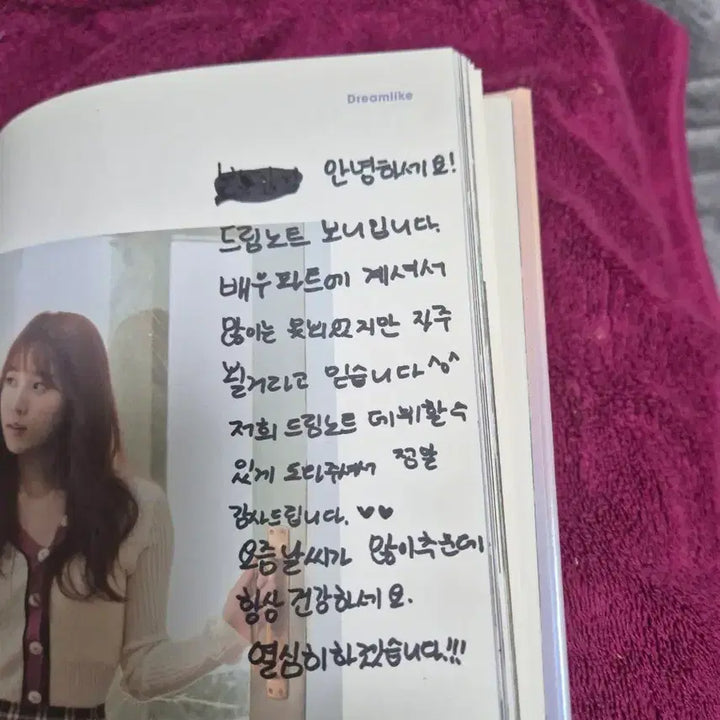 Dreamlike
안녕하세요!
드림노트 보니입니다.
배우파트에 계셔서
많이는 못뵈었지만 자주
뵐거라고 믿습니다^^
저희 드림노트 데뷔할 수
있게 도와주셔서 정말
감사드립니다. ♥♥
요즘 날씨가 많이 추운데
항상 건강하세요.
열심히하겠습니다.!!!